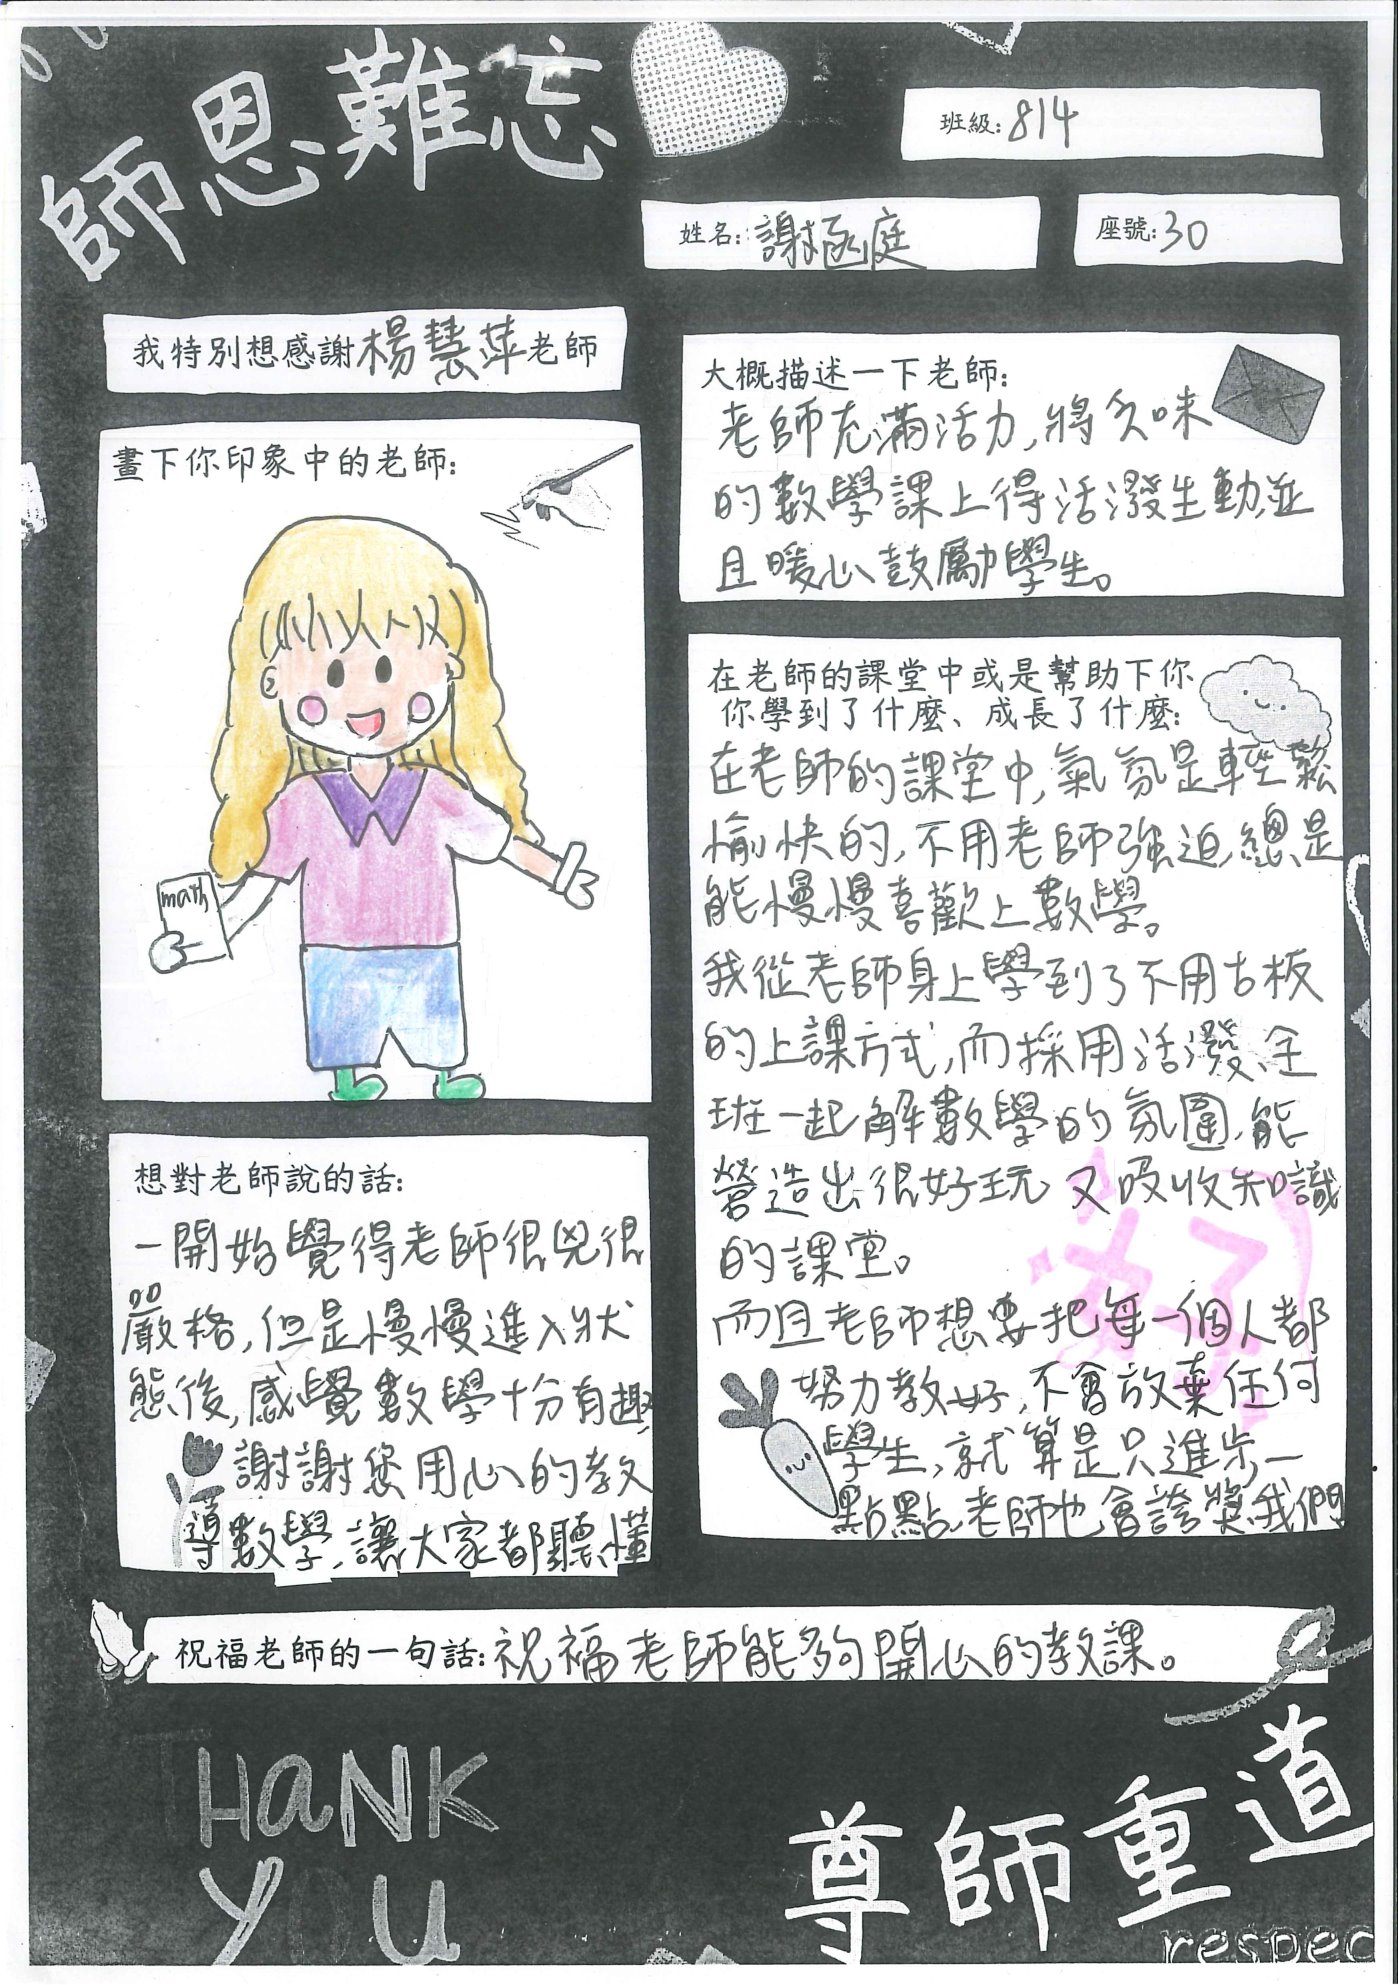 師恩難忘
班級:814
姓名:謝函庭
座號:30
我特別想感謝楊慧萍老師
畫下你印象中的老師:
math
大概描述一下老師:
老師充滿活力,將乏味
的數學課上得活潑生動,並
且暖心鼓勵學生。
在老師的課堂中或是幫助下你
你學到了什麼、成長了什麼:
在老師的課堂中,氣氛是輕鬆
愉快的,不用老師強迫,總是
能慢慢喜歡上數學。
我從老師身上學到了不用古板
的上課方式,而採用活潑、全
班一起解數學的氛圍,能
營造出很好玩又吸收知識
的課堂。
而且老師想要把每一個人都
努力教好,不會放棄任何
學生,就算是只進步一
點點,老師也會誇獎我們
好
想對老師說的話:
一開始覺得老師很兇很
嚴格,但是慢慢進入狀
態後,感覺數學十分有趣,
謝謝您用心的教
導數學,讓大家都聽懂
祝福老師的一句話:祝福老師能夠開心的教課。
THANK
YOU
尊師重道
respec